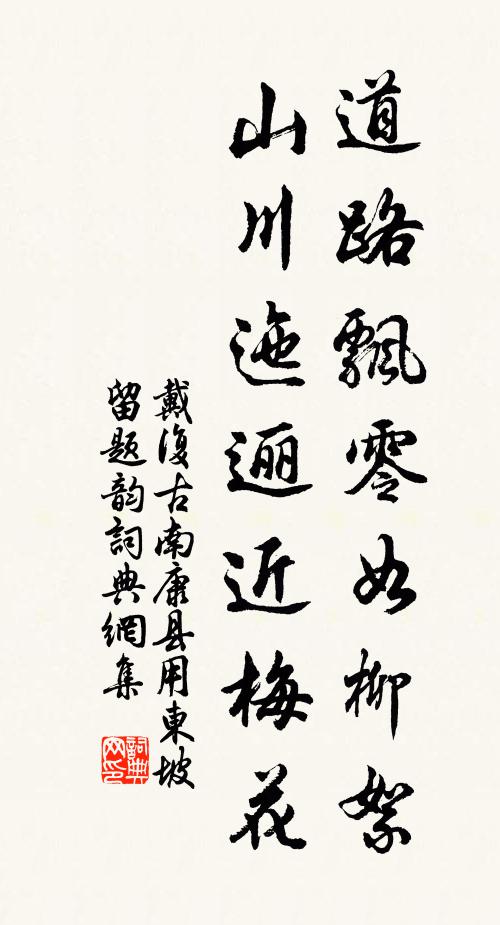 道路飄零如柳絮
山川迤逦近梅花
戴復古南康县用東坡
留题韵詞典網集
詞典
网印